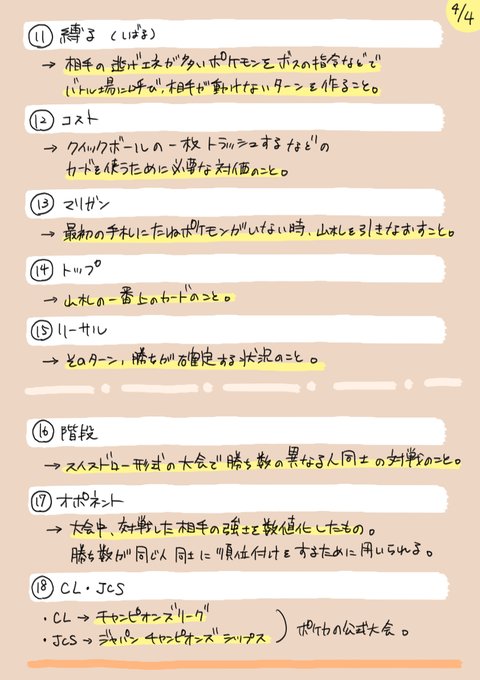 4/4
⑪ 縛る (しばる)
→ 相手の逃げエネが多いポケモンをボスの指令などで
バトル場に呼び、相手が動けないターンを作ること。
⑫ コスト
→ クイックボールの一枚トラッシュするなどの
カードを使うために必要な対価のこと。
⑬ マリガン
→ 最初の手札にたねポケモンがいない時、山札を引きなおすこと。
⑭ トップ
→ 山札の一番上のカードのこと。
⑮ リーサル
→ そのターン、勝ちが確定する状況のこと。
⑯ 階段
→ スイスドロー形式の大会で勝ち数の異なる人同士の対戦のこと。
⑰ オポネント
→ 大会中、対戦した相手の強さを数値化したもの。
勝ち数が同じ人同士に順位付けをするために用いられる。
⑱ CL・JCS
・CL → チャンピオンズリーグ
・JCS → ジャパンチャンピオンズシップス
) ポケカの公式大会。